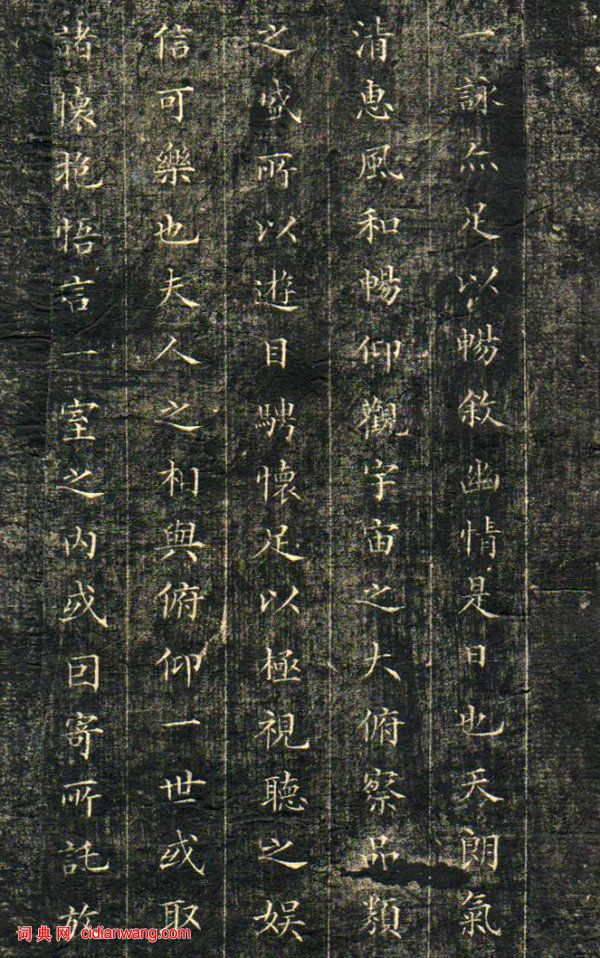 一詠亦足以暢敘幽情是日也天朗氣
清惠風和暢仰觀宇宙之大俯察品類
之盛所以遊目騁懷足以極視聽之娛
信可樂也夫人之相與俯仰一世或取
諸懷抱悟言一室之內或因寄所託放
词典网 cidianwang.com